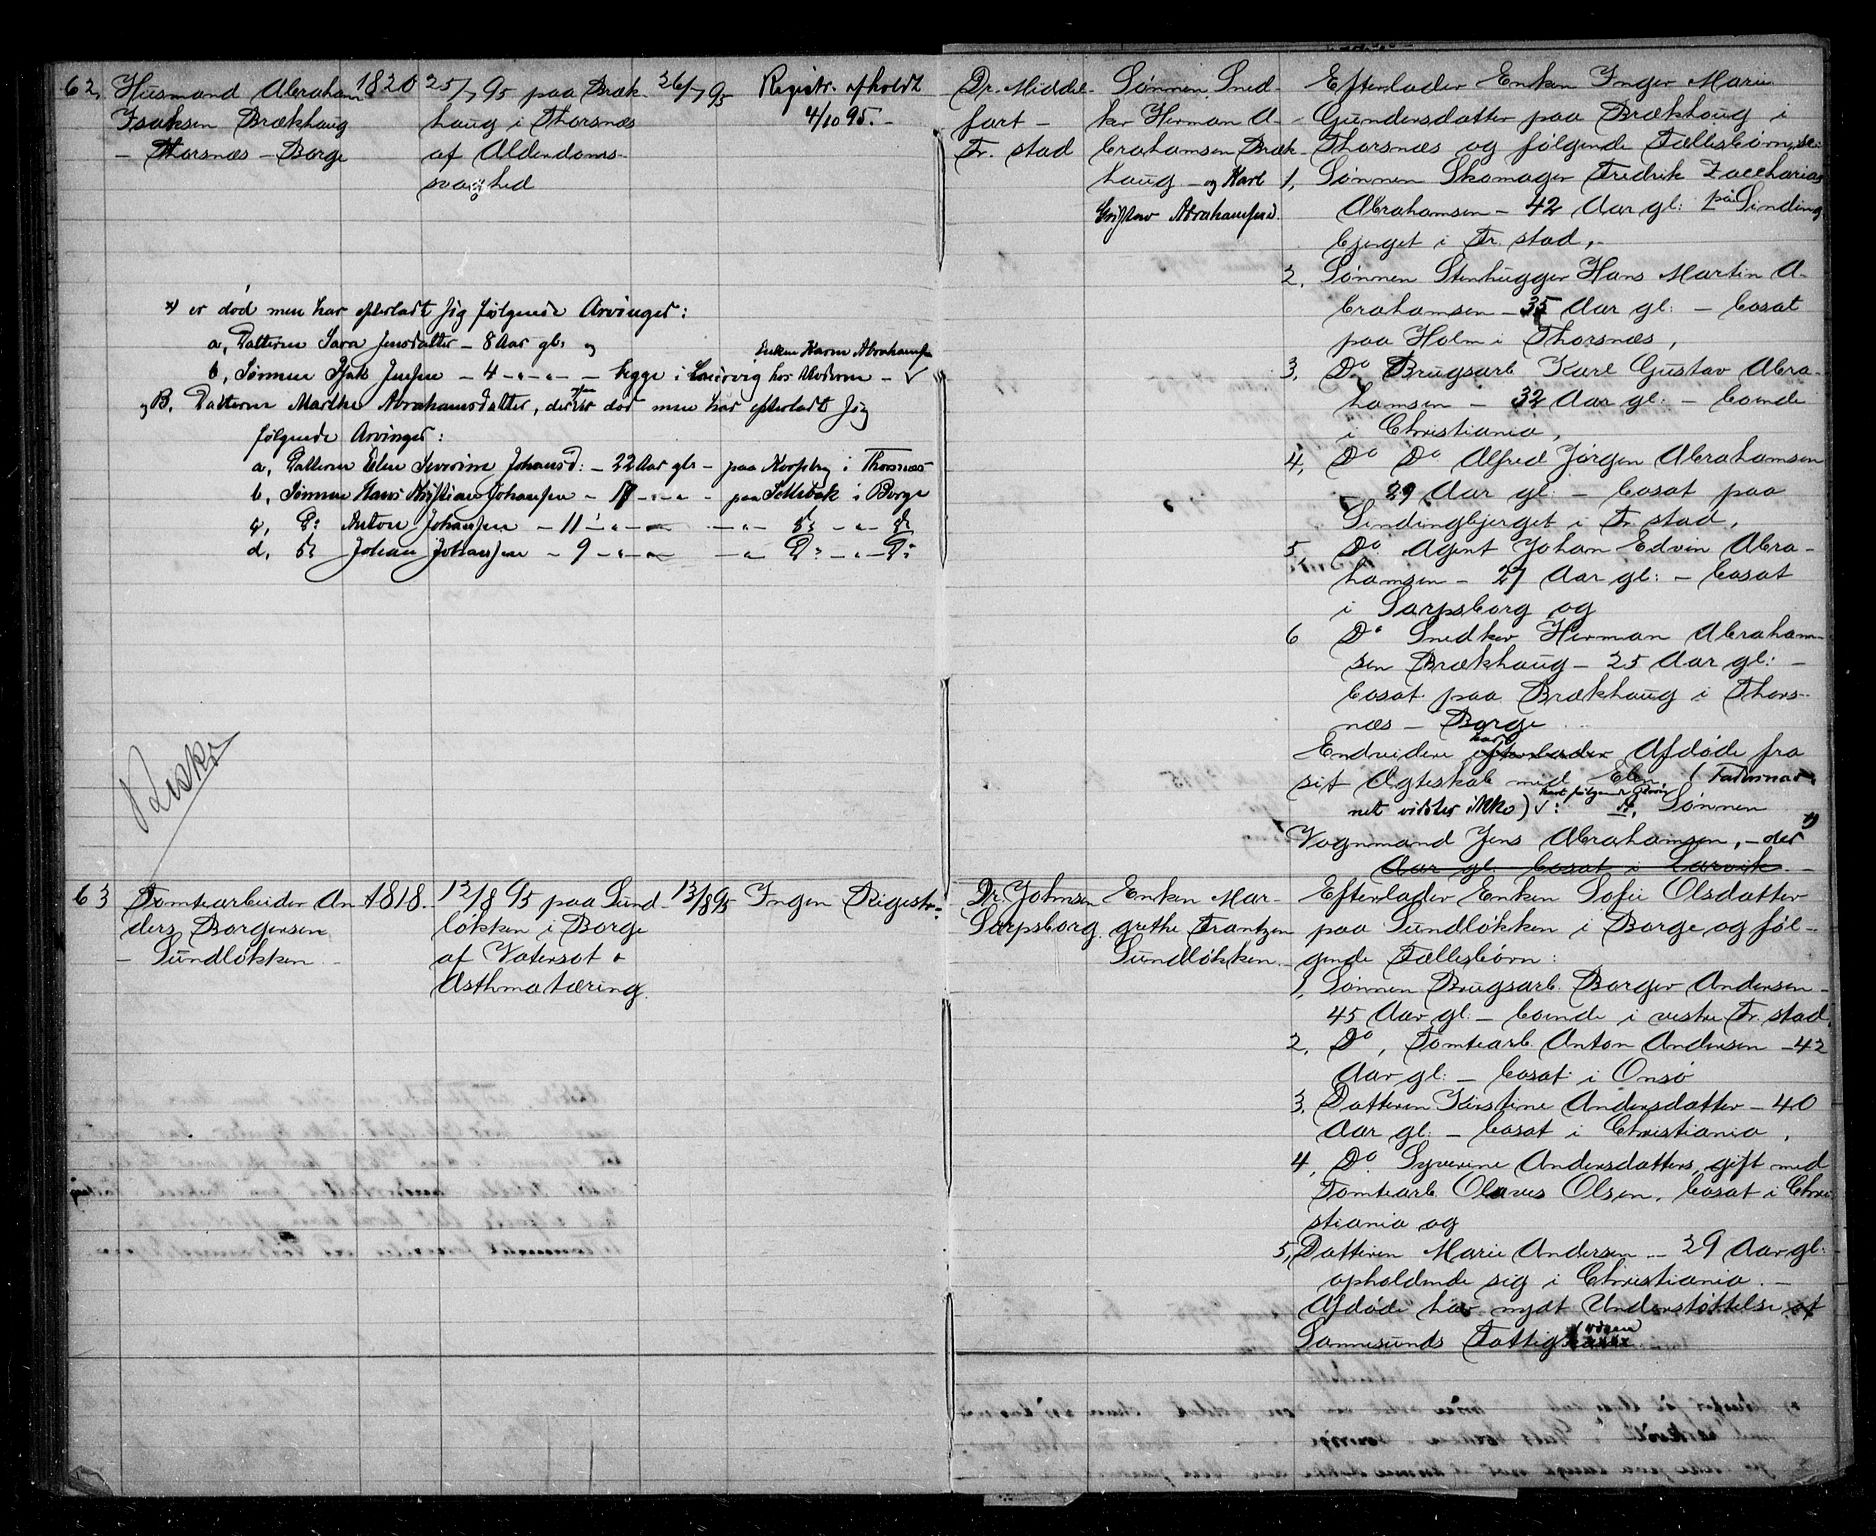 62, Husmand Abraham
Isaksen Brækhaug
— Thorsnæs — Borge
1820
25/7 95 paa Bræk-
haug i Thorsnæs
af Alderdoms-
svaghed
26/7 95
Registr. afholdt
4/10 95. —
Dr. Middel-
fart —
Fr. stad
Sønnen Sned-
ker Herman A-
brahamsen Bræk-
haug — og Karl
Gustav Abrahamsen.
Efterlader Enken Inger Marie
Gundersdatter paa Brækhaug i
Thorsnæs og følgende Fællesbørn,
1, Sønnen Skomager Fredrik Zaccharias
Abrahamsen — 42 Aar gl: paa Sinding
bjerget i Fr. stad, —
2, Sønnen Stenhugger Hans Martin A-
brahamsen — 35 Aar gl: — bosat
paa Holm i Thorsnæs,
3, Do Brugsarb Karl Gustav Abra-
hamsen — 32 Aar gl: — boende
i Christiania,
4, Do Do Alfred Jørgen Abrahamsen
29 Aar gl: — bosat paa
Sindingbjerget i Fr. stad,
5, Do Agent Johan Edvin Abra-
hamsen — 27 Aar gl: — bosat
i Sarpsborg og
6 Do Snedker Herman Abraham-
sen Brækhaug — 25 Aar gl: —
bosat paa Brækhaug i Thors-
næs — Borge
Endvidere har efterlader Afdøde fra
sit Ægteskab med Elen (Fadernav-
net vidstes ikke) √: havt følgende A, Sønnen
Vognmand Jens Abrahamsen, — der x)
Aar gl. bosat i Larvik. —
x) er død men har efterladt sig følgende Arvinger:
a, Datteren Sara Jensdatter — 8 Aar gl: og
b, Sønnen Isak Jensen — 4 — " — " — begge i Laurvig hos Moderen — √
Enken Karen Abrahamsen
og B. Datteren Marthe Abrahamsdatter, der er død men har efterladt sig
følgende Arvinger:
a, Datteren Elen Severine Johansd: — 22 Aar gl: — paa Korsberg i Thorsnæs
b, Sønnen Hans Kristian Johansen — 17 — " — " — paa Sellebak i Borge
c, Do Anton Johansen — 11 — " — " — " — Do — " — Do
d, Do Johan Johansen — 9 — " — " — " — Do — " — Do
63 Tomtearbeider An-
ders Borgersen
— Sundløkken —
1818.
12/8 95 paa Sund-
løkken i Borge
af Vatersot &
Asthmatæring.
13/8 95
Ingen Registr:
Dr. Johnsen
Sarpsborg.
Enken Mar-
grethe Frantzen
Sundløkken. —
Efterlader Enken Sofie Olsdatter
paa Sundløkken i Borge og føl-
gende Fællesbørn:
1, Sønnen Brugsarb. Borger Andersen —
45 Aar gl: — boende i vestre Fr. stad,
2, Do, Tomtearb. Anton Andersen — 42
Aar gl: — bosat i Onsø
3, Datteren Kirstine Andersdatter — 40
Aar gl: — bosat i Christiania,
4, Do. Syverine Andersdatter, gift med
Tomtearb. Olaves Olsen, bosat i Chri-
stiania og
5, Datteren Marie Andersen — 29 Aar gl:
opholdende sig i Christiania. —
Afdøde har nydt Understøttelse af
Sannesunds Fattigvæsen